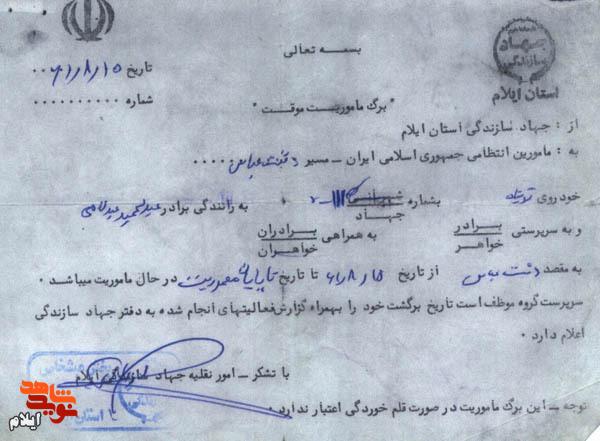 جهاد
سازندگی
استان ایلام
بسمه تعالی
تاریخ ۶۱/۸/۱۵
شماره
"برگ ماموریت موقت"
از : جهاد سازندگی استان ایلام
به : مامورین انتظامی جمهوری اسلامی ایران ــ مسیر دشت عباس
خودروی تویوتا بشماره جهاد به رانندگی برادر عبدالحمید
و به سرپرستی برادر خواهر به همراهی برادران خواهران
به مقصد دشت عباس از تاریخ ۶۱/۸/۱۵ تا تاریخ تا پایان ماموریت در حال ماموریت میباشد .
سرپرست گروه موظف است تاریخ برگشت خود را بهمراه گزارش فعالیتهای انجام شده به دفتر جهاد سازندگی
اعلام دارد .
با تشکر ــ امور نقلیه جهاد سازندگی ایلام
توجه ــ این برگ ماموریت در صورت قلم خوردگی اعتبار ندارد .
نوید شاهد
ایلام